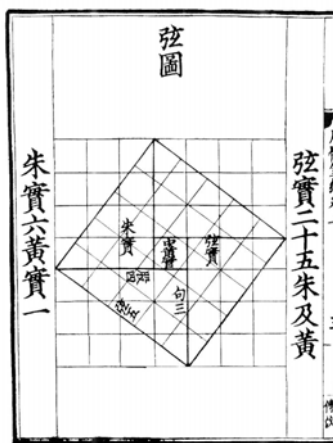 弦圖
弦實二十五朱及黃
朱實六黃實一
朱實
中黃實
弦實
句三
股四
弦五